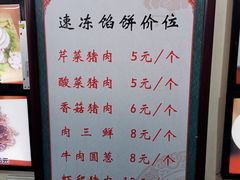 速冻馅饼价位
芹菜猪肉 5元/个
酸菜猪肉 5元/个
香菇猪肉 6元/个
肉三鲜 8元/个
牛肉圆葱 8元/个